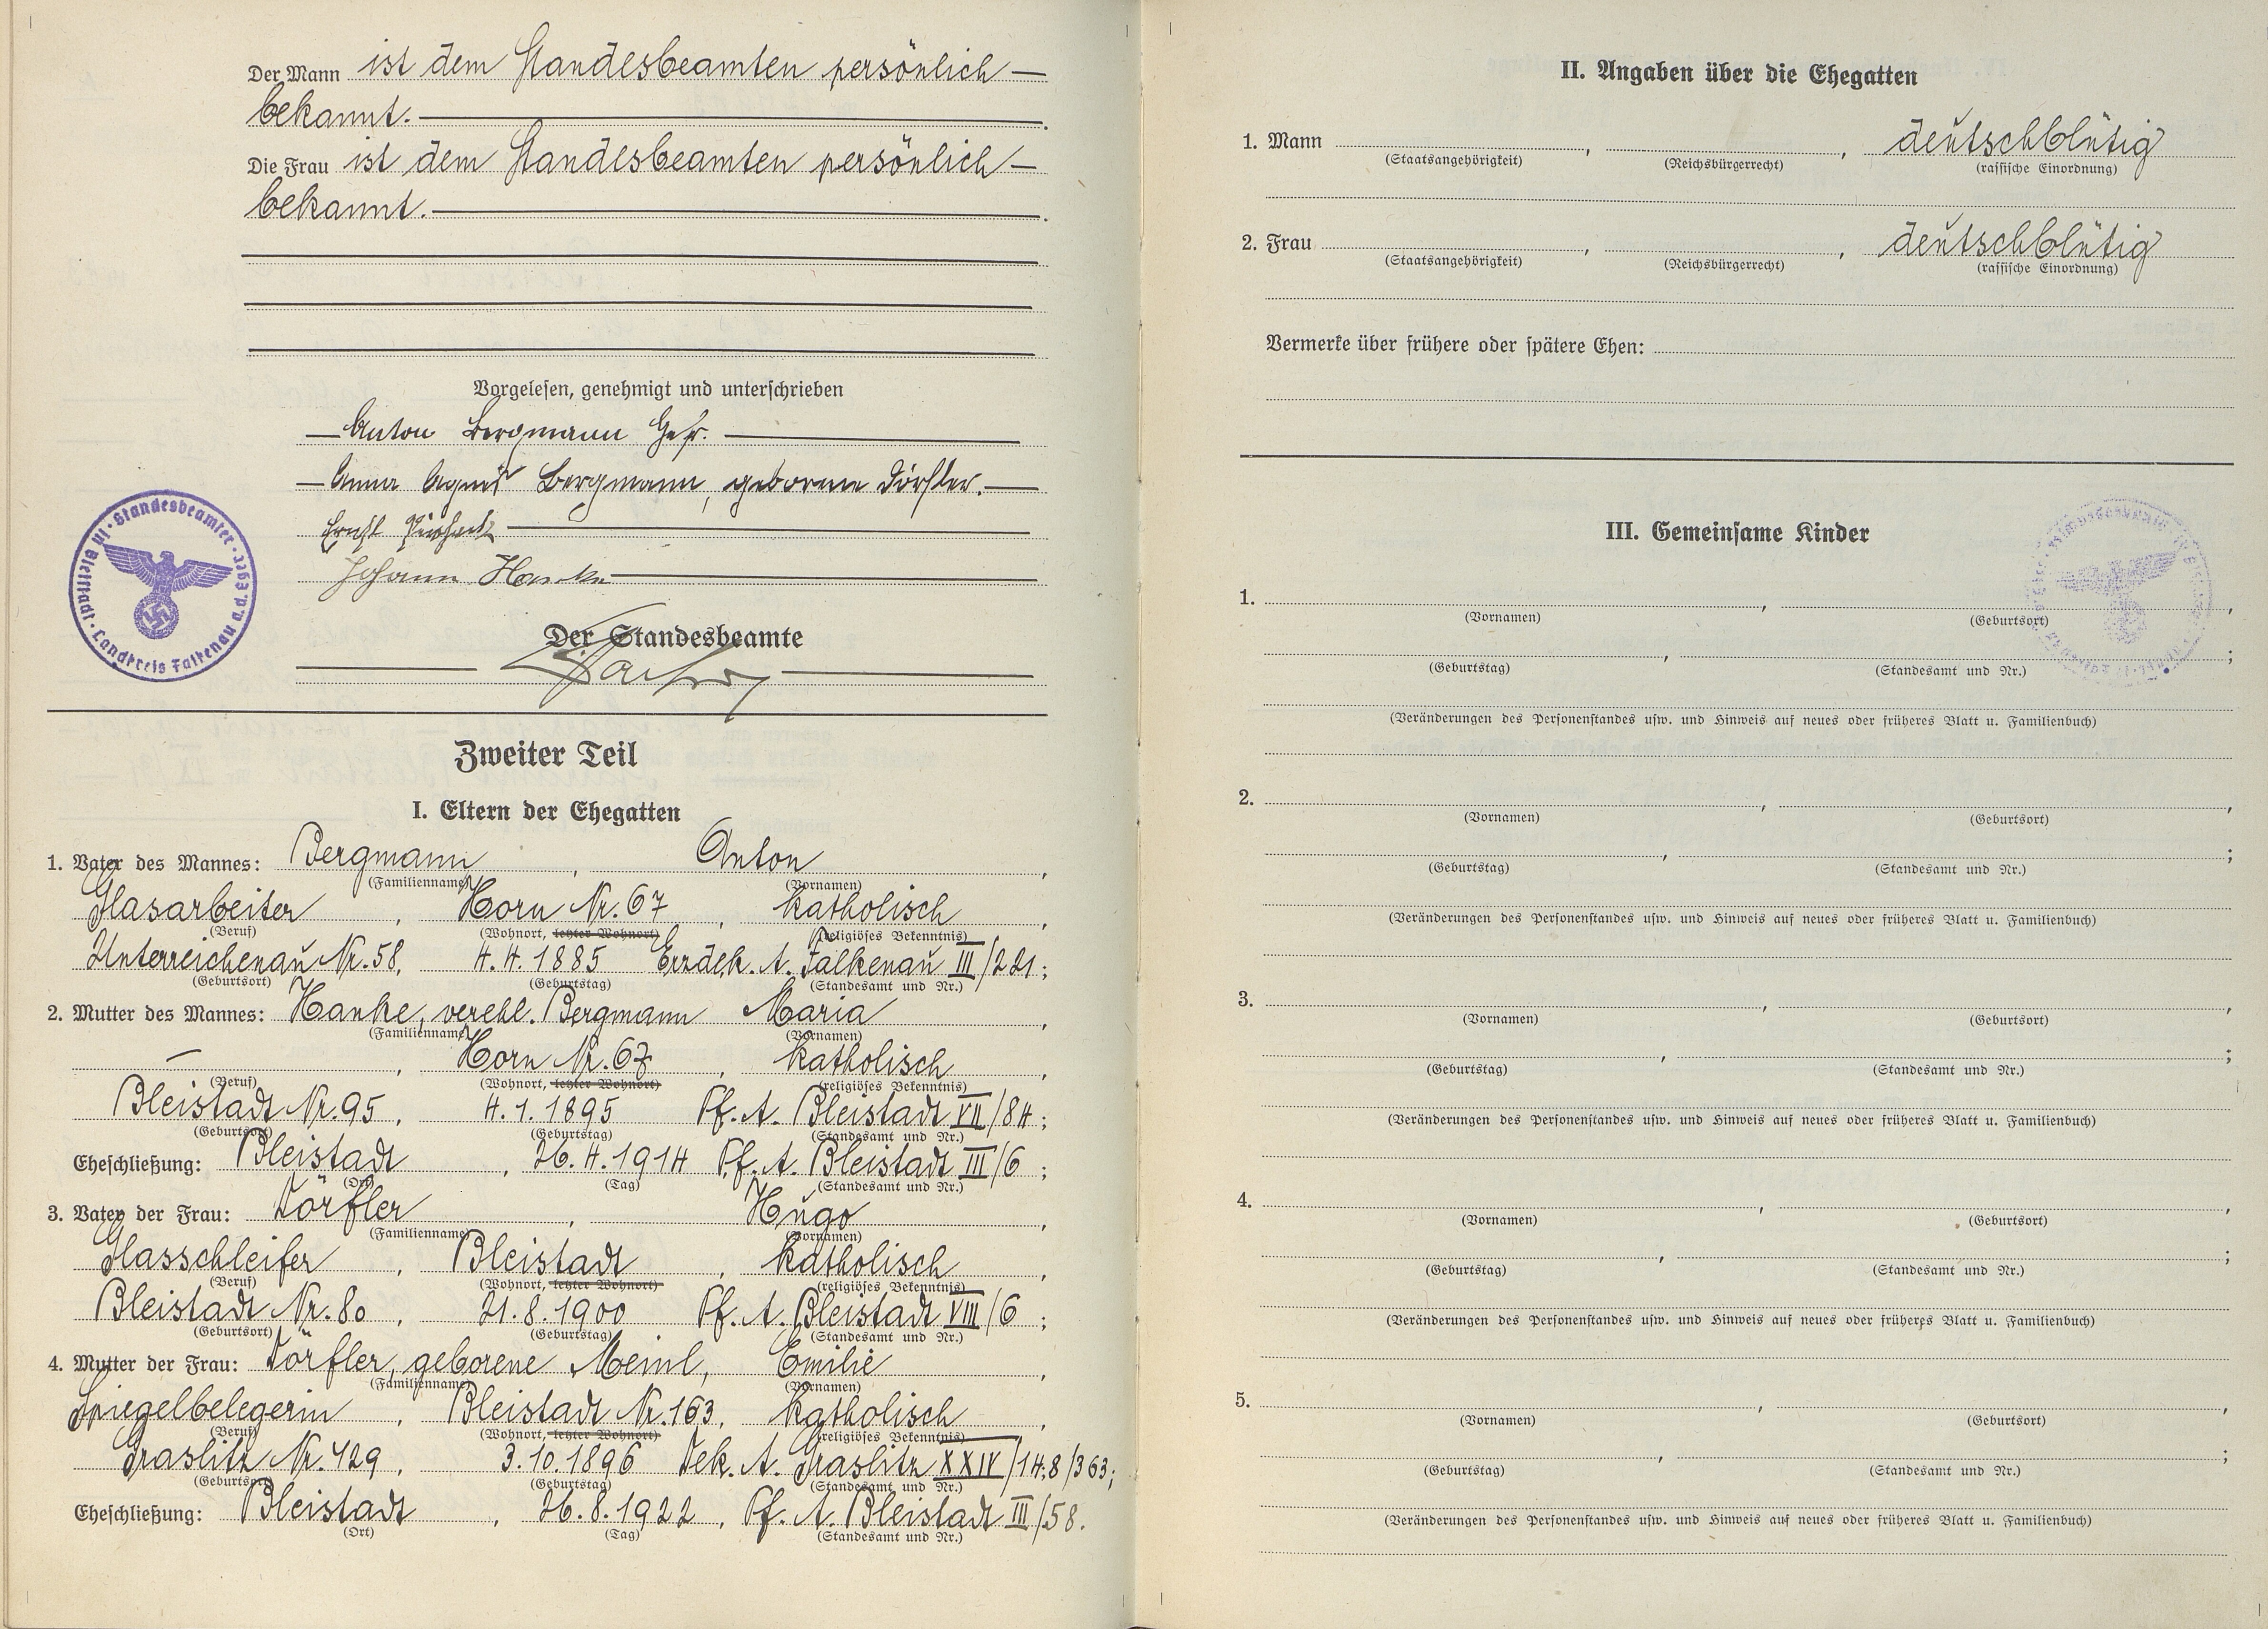 Der Mann ist dem Standesbeamten persönlich —
bekannt. —
Die Frau ist dem Standesbeamten persönlich —
bekannt. —
Vorgelesen, genehmigt und unterschrieben
— Anton Bergmann Gefr. —
— Anna Agnes Bergmann, geborene Dörfler. —
Ernst
Johann Hanke —
Der Standesbeamte
Standesbeamter · Bleistadt · Landkreis Falkenau a.d. Eger
Zweiter Teil
I. Eltern der Ehegatten
1. Vater des Mannes: Bergmann, Anton,
(Familienname) (Vornamen)
Glasarbeiter, Horn Nr. 67, katholisch,
(Beruf) (Wohnort, letzter Wohnort) (religiöses Bekenntnis)
Unterreichenau Nr. 58, 4.4.1885 Erzdek. A. Falkenau III/221;
(Geburtsort) (Geburtstag) (Standesamt und Nr.)
2. Mutter des Mannes: Hanke, verehl. Bergmann Maria,
(Familienname) (Vornamen)
—, Horn Nr. 67, katholisch,
(Beruf) (Wohnort, letzter Wohnort) (religiöses Bekenntnis)
Bleistadt Nr. 95, 4.1.1895 Pf. A. Bleistadt VII/84;
(Geburtsort) (Geburtstag) (Standesamt und Nr.)
Eheschließung: Bleistadt, 26.4.1914 Pf. A. Bleistadt III/6;
(Ort) (Tag) (Standesamt und Nr.)
3. Vater der Frau: Dörfler, Hugo,
(Familienname) (Vornamen)
Glasschleifer, Bleistadt, katholisch,
(Beruf) (Wohnort, letzter Wohnort) (religiöses Bekenntnis)
Bleistadt Nr. 80, 21.8.1900 Pf. A. Bleistadt VIII/6;
(Geburtsort) (Geburtstag) (Standesamt und Nr.)
4. Mutter der Frau: Dörfler, geborene Meinl, Emilie,
(Familienname) (Vornamen)
Spiegelbelegerin, Bleistadt Nr. 163, katholisch,
(Beruf) (Wohnort, letzter Wohnort) (religiöses Bekenntnis)
Graslitz Nr. 429, 3.10.1896 Dek. A. Graslitz XXIV/148/363;
(Geburtsort) (Geburtstag) (Standesamt und Nr.)
Eheschließung: Bleistadt, 26.8.1922, Pf. A. Bleistadt III/58.
(Ort) (Tag) (Standesamt und Nr.)
II. Angaben über die Ehegatten
1. Mann , , deutschblütig
(Staatsangehörigkeit) (Reichsbürgerrecht) (rassische Einordnung)
2. Frau , , deutschblütig
(Staatsangehörigkeit) (Reichsbürgerrecht) (rassische Einordnung)
Vermerke über frühere oder spätere Ehen:
III. Gemeinsame Kinder
1. , ,
(Vornamen) (Geburtsort)
, ;
(Geburtstag) (Standesamt und Nr.)
(Veränderungen des Personenstandes usw. und Hinweis auf neues oder früheres Blatt u. Familienbuch)
2. , ,
(Vornamen) (Geburtsort)
, ;
(Geburtstag) (Standesamt und Nr.)
(Veränderungen des Personenstandes usw. und Hinweis auf neues oder früheres Blatt u. Familienbuch)
3. , ,
(Vornamen) (Geburtsort)
, ;
(Geburtstag) (Standesamt und Nr.)
(Veränderungen des Personenstandes usw. und Hinweis auf neues oder früheres Blatt u. Familienbuch)
4. , ,
(Vornamen) (Geburtsort)
, ;
(Geburtstag) (Standesamt und Nr.)
(Veränderungen des Personenstandes usw. und Hinweis auf neues oder früheres Blatt u. Familienbuch)
5. , ,
(Vornamen) (Geburtsort)
, ;
(Geburtstag) (Standesamt und Nr.)
(Veränderungen des Personenstandes usw. und Hinweis auf neues oder früheres Blatt u. Familienbuch)